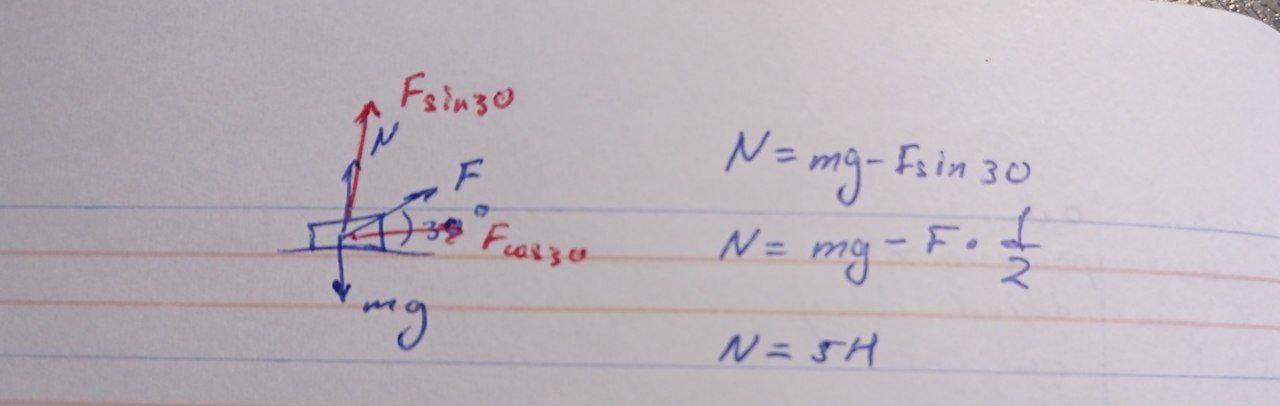 Fsin30
N
F
30°
Fcos30
mg
N = mg - Fsin 30
N = mg - F · 1/2
N = 5H